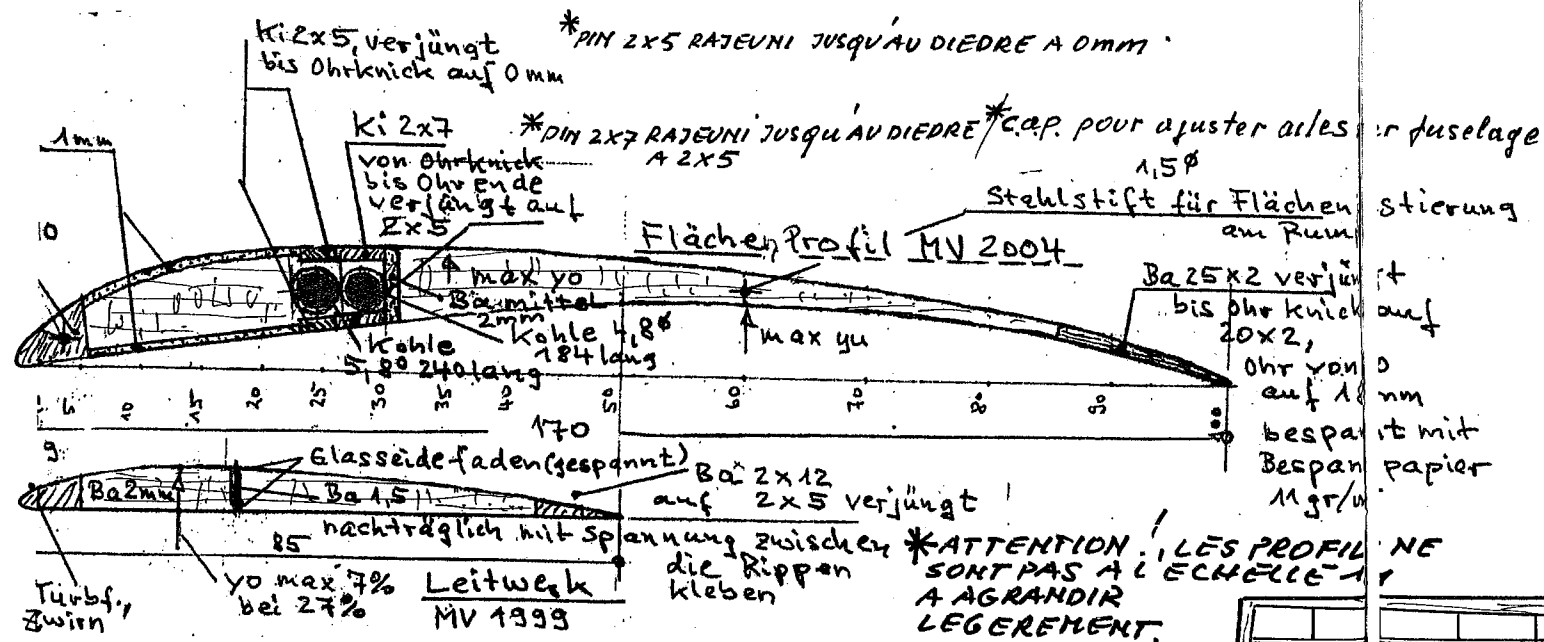 Ki 2x5, verjüngt
bis Ohrknick auf 0mm
*PIN 2x5 RAJEUNI JUSQU'AU DIEDRE A 0mm
1mm
Ki 2x7
von Ohrknick
bis Ohrende
verjüngt auf
2x5
*PIN 2x7 RAJEUNI JUSQU'AU DIEDRE
A 2x5
*C.a.p. pour ajuster ailes fuselage
1,5ø
Stahlstift für Flächen stierung
am Rum
10
Flächen Profil MV 2004
max yo
Ba mittel
2mm
Kohle 4,8ø
184 lang
Kohle
5,8ø 240 lang
max yu
Ba 25x2 verjüngt
bis Ohrknick auf
20x2,
Ohr von
auf 18 mm
bespa t mit
Bespan papier
11gr/
5 10 15 20 25 30 35 40 50 60 70 80 90 100
170
9
Glasseidefaden (gespannt)
Ba 2mm
Ba 1,5
Ba 2x12
auf 2x5 verjüngt
nachträglich mit Spannung zwischen
die Rippen
kleben
85
yo max 7%
bei 27%
Leitwerk
MV 1999
Turbf.,
Zwirn
*ATTENTION!, LES PROFIL NE
SONT PAS A L'ECHELLE
A AGRANDIR
LEGEREMENT.